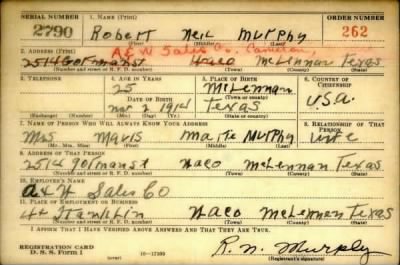 SERIAL NUMBER 1. NAME (Print) ORDER NUMBER
2790 Robert Neil Murphy 262
(First) (Middle) (Last)
A&W Sales Co. Cameron,
2. ADDRESS (Print)
2514 Gorman St Waco McLennan Texas
(Number and street) (Town) (County) (State)
3. TELEPHONE 4. AGE IN YEARS 5. PLACE OF BIRTH 6. COUNTRY OF CITIZENSHIP
25 McLennan
DATE OF BIRTH (Town or county)
Nov 2 1914 Texas U.S.A.
(Exchange) (Number) (Mo.) (Day) (Yr.) (State or country)
7. NAME OF PERSON WHO WILL ALWAYS KNOW YOUR ADDRESS 8. RELATIONSHIP OF THAT PERSON
Mrs Mavis Marie Murphy wife
(Mr., Mrs., Miss) (First) (Middle) (Last)
9. ADDRESS OF THAT PERSON
2514 Gorman St Waco McLennan Texas
(Number and street) (Town) (County) (State)
10. EMPLOYER'S NAME
A & W Sales Co
11. PLACE OF EMPLOYMENT OR BUSINESS
4th Franklin Waco McLennan Texas
(Number and street) (Town) (County) (State)
I AFFIRM THAT I HAVE VERIFIED ABOVE ANSWERS AND THAT THEY ARE TRUE.
REGISTRATION CARD
D. S. S. Form 1 16-17105 R. N. Murphy
(Registrant's signature)